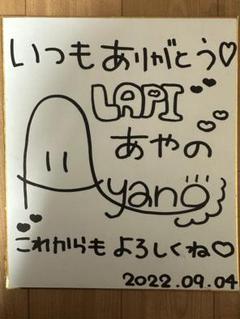 いつもありがとう♡
LAPI
あやの
Ayano
これからもよろしくね♡
2022.09.04